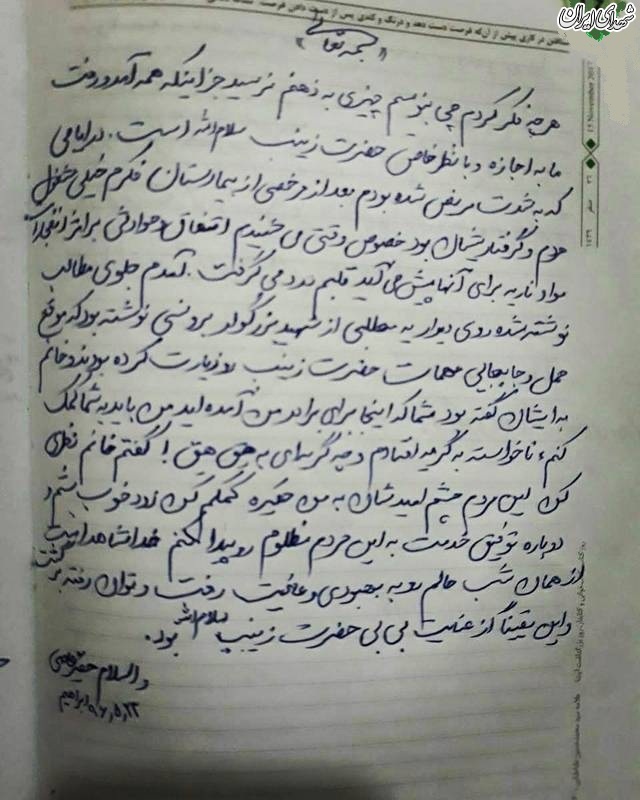 شهدای ایران
شتافتن در کاری پیش از آن‌که فرصت دست دهد و درنگ و کندی پس از دست دادن فرصت
15 November 2017
٢٦ صفر ١٤٣٩
بسمه تعالی
هرچه فکر کردم چی بنویسم چیزی به ذهنم نرسید جز اینکه همه آمد و رفت
ما به اجازه و با نظر خاص حضرت زینب سلام الله است. در ایامی
که به شدت مریض شده بودم بعد از مرخصی از بیمارستان فکرم خیلی مشغول
مردم و گرفتاریشان بود خصوص وقتی می شنیدم اتفاق و حوادثی بر اثر انفجارات
مواد ناریه برای آنها پیش می آید قلبم درد می گرفت. آمدم جلوی مطالب
نوشته شده روی دیوار یه مطلبی از شهید بزرگوار برونسی نوشته بود که موقع
حمل و جابجایی مهمات حضرت زینب رو زیارت کرده بودند و خانم
به ایشان گفته بود شما که اینجا برای برادر من آمده اید من باید به شما کمک
کنم، ناخواسته به گریه افتادم و چه گریه‌ای به هق هق! گفتم خانم نظری
کن این مردم چشم امیدشان به من حقیره کمکم کن زود خوب بشم و
دوباره توفیق خدمت به این مردم مظلوم رو پیدا کنم خدا شاهد است
از همان شب حالم رو به بهبودی و عافیت رفت و توان رفته برگشت
و این یقیناً از عنایت بی بی حضرت زینب سلام الله بود.
والسلام حقیر
ابراهیم ٩٦٫٥٫٢٢
علامه سید محمدحسین طباطبایی